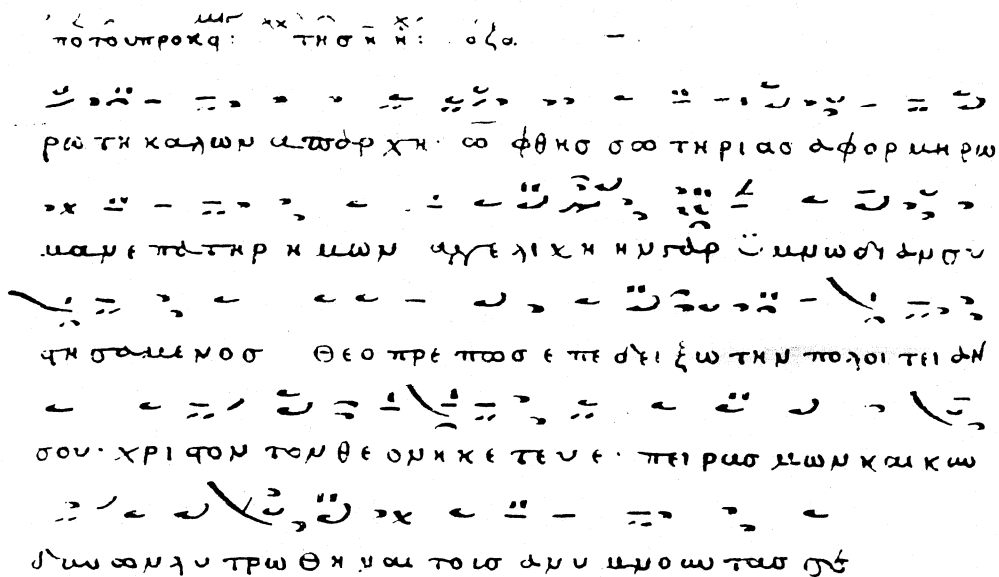 ρω τη καλων απάρχη· ω φθησ σω τηριασ αφορμη ρω
μανε πατηρ ημων αγγελικη ην γαρ ϋμνωδιανσυ
στησαμενοσ θεο πρε πωσ ε πε δει ξω την πολοι τει άν
σου· χριστον τον θε ονηκε τευε· πειρασ μων και κιν
λυ τρω θη ναι τοισ ανυ μνουν τασ σε